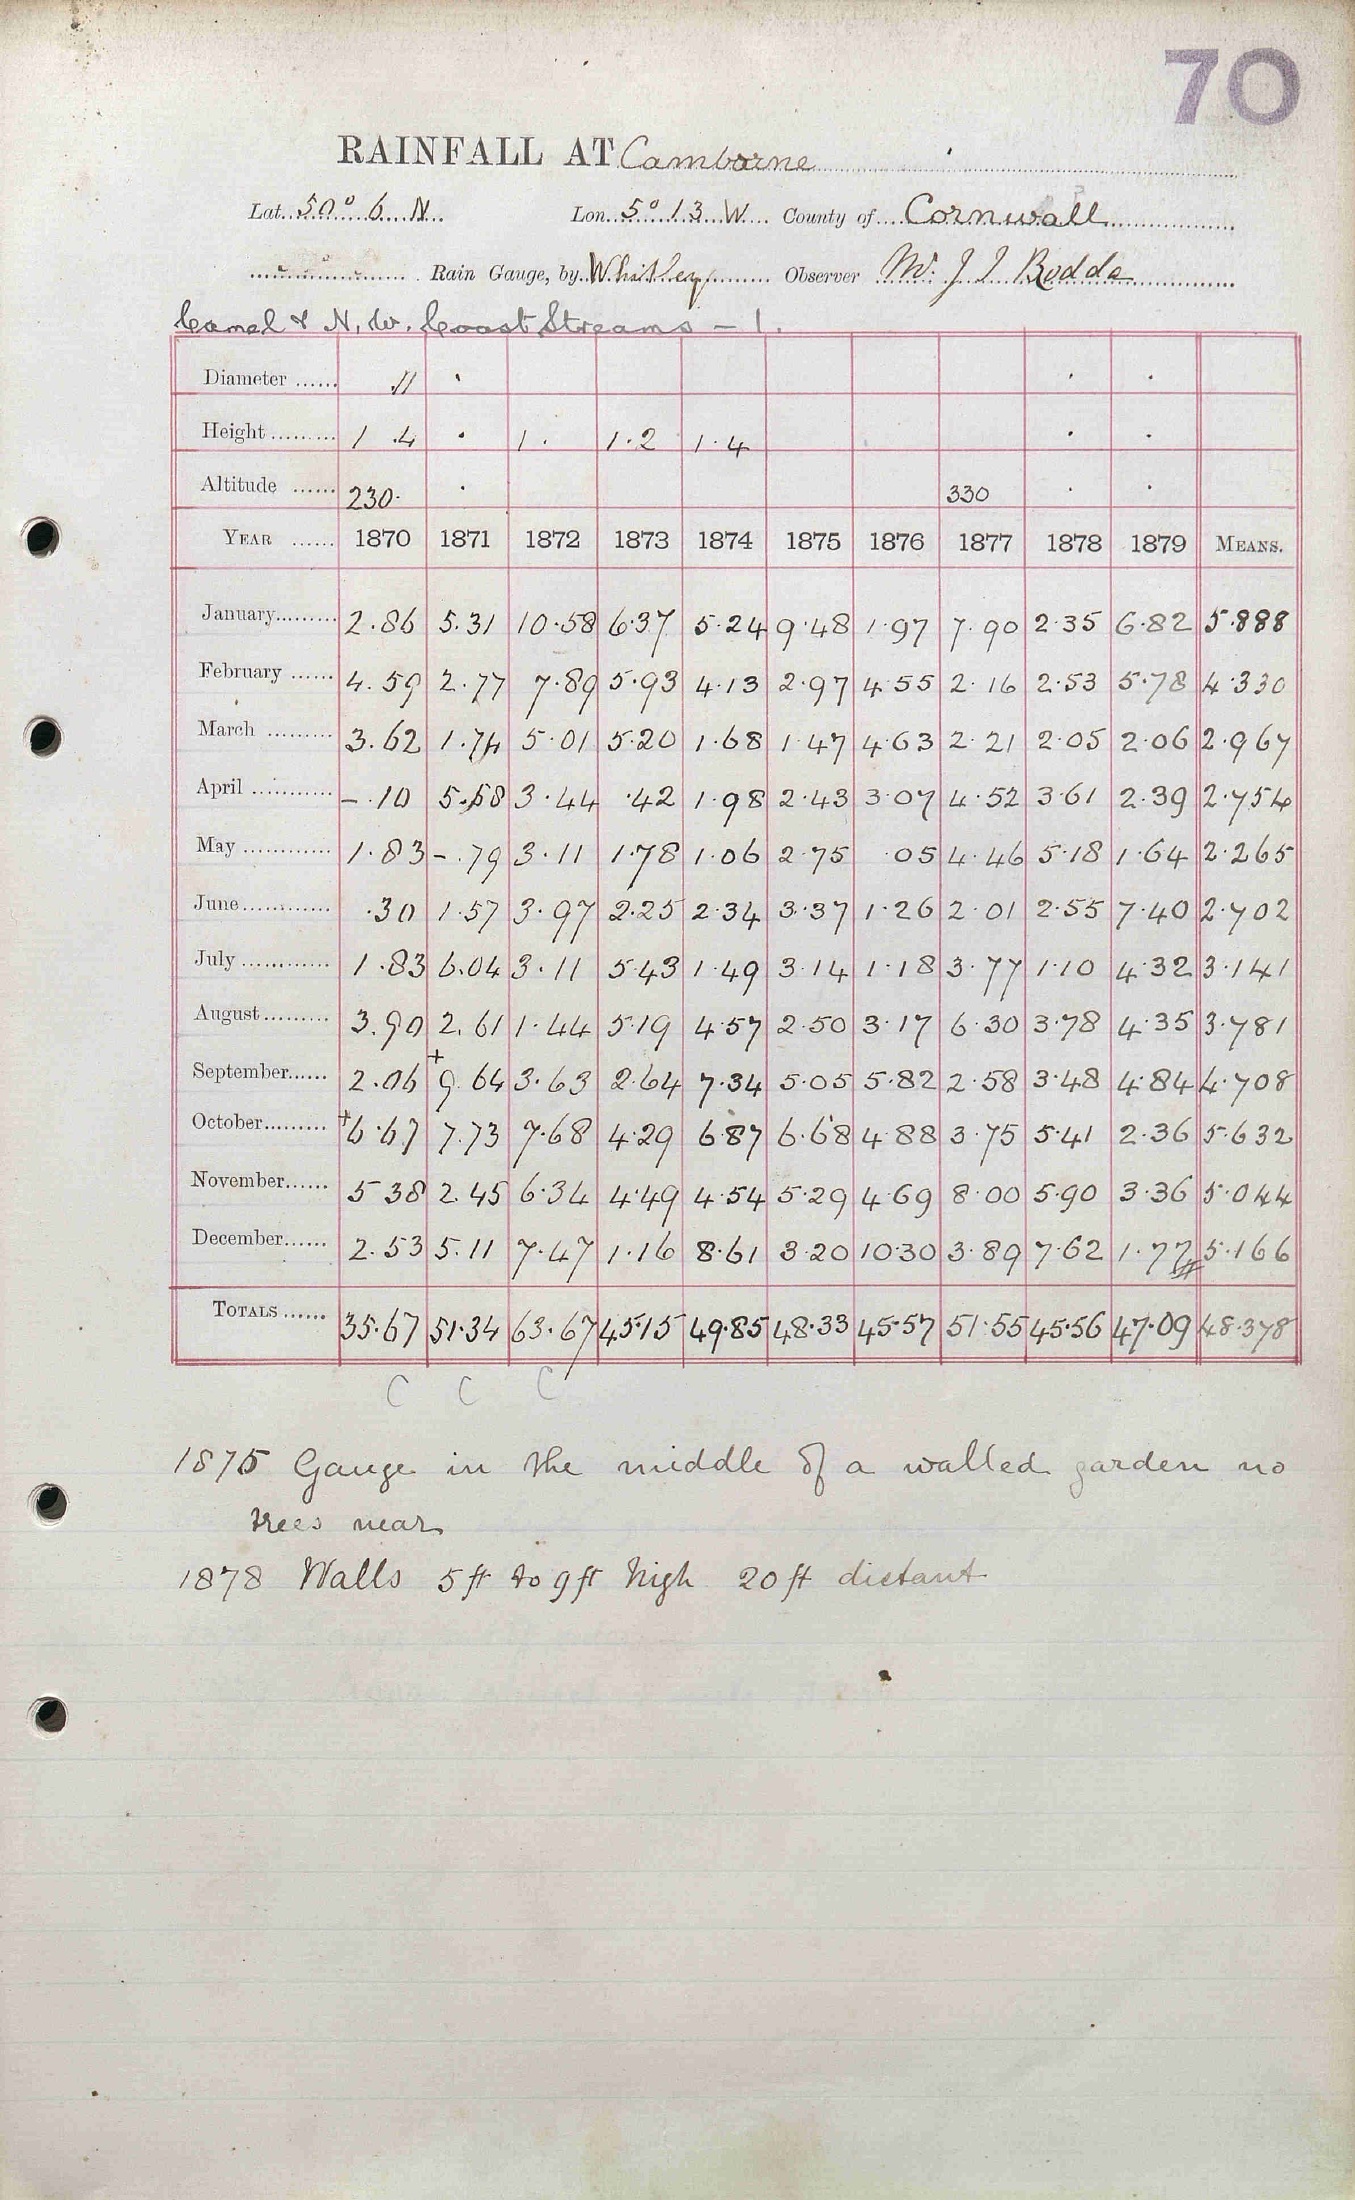 70
RAINFALL AT Camborne
Lat. 50° 6 N Lon. 5° 13 W County of Cornwall
Rain Gauge, by Whitley Observer Mr. J J Rodda
Camel & N.W. Coast Streams – 1.
Diameter ...... 11
Height ......... 1 .4 1 . 1.2 1.4
Altitude ...... 230. 330
YEAR ...... 1870 1871 1872 1873 1874 1875 1876 1877 1878 1879 MEANS.
January......... 2.86 5.31 10.58 6.37 5.24 9.48 1.97 7.90 2.35 6.82 5.888
February ...... 4.59 2.77 7.89 5.93 4.13 2.97 4.55 2.16 2.53 5.78 4.330
March ......... 3.62 1.74 5.01 5.20 1.68 1.47 4.63 2.21 2.05 2.06 2.967
April ............ –.10 5.58 3.44 .42 1.98 2.43 3.07 4.52 3.61 2.39 2.754
May ............ 1.83 –.79 3.11 1.78 1.06 2.75 .05 4.46 5.18 1.64 2.265
June............ .30 1.57 3.97 2.25 2.34 3.37 1.26 2.01 2.55 7.40 2.702
July ............ 1.83 6.04 3.11 5.43 1.49 3.14 1.18 3.77 1.10 4.32 3.141
August......... 3.90 2.61 1.44 5.19 4.57 2.50 3.17 6.30 3.78 4.35 3.781
September...... 2.06 +9.64 3.63 2.64 7.34 5.05 5.82 2.58 3.48 4.84 4.708
October......... +6.67 7.73 7.68 4.29 6.87 6.68 4.88 3.75 5.41 2.36 5.632
November...... 5 38 2.45 6.34 4.49 4.54 5.29 4.69 8.00 5.90 3.36 5.044
December...... 2.53 5.11 7.47 1.16 8.61 3.20 10.30 3.89 7.62 1.77 5.166
TOTALS ...... 35.67 51.34 63.67 45.15 49.85 48.33 45.57 51.55 45.56 47.09 48.378
C C C
1875 Gauge in the middle of a walled garden no
trees near
1878 Walls 5 ft to 9 ft high 20 ft distant